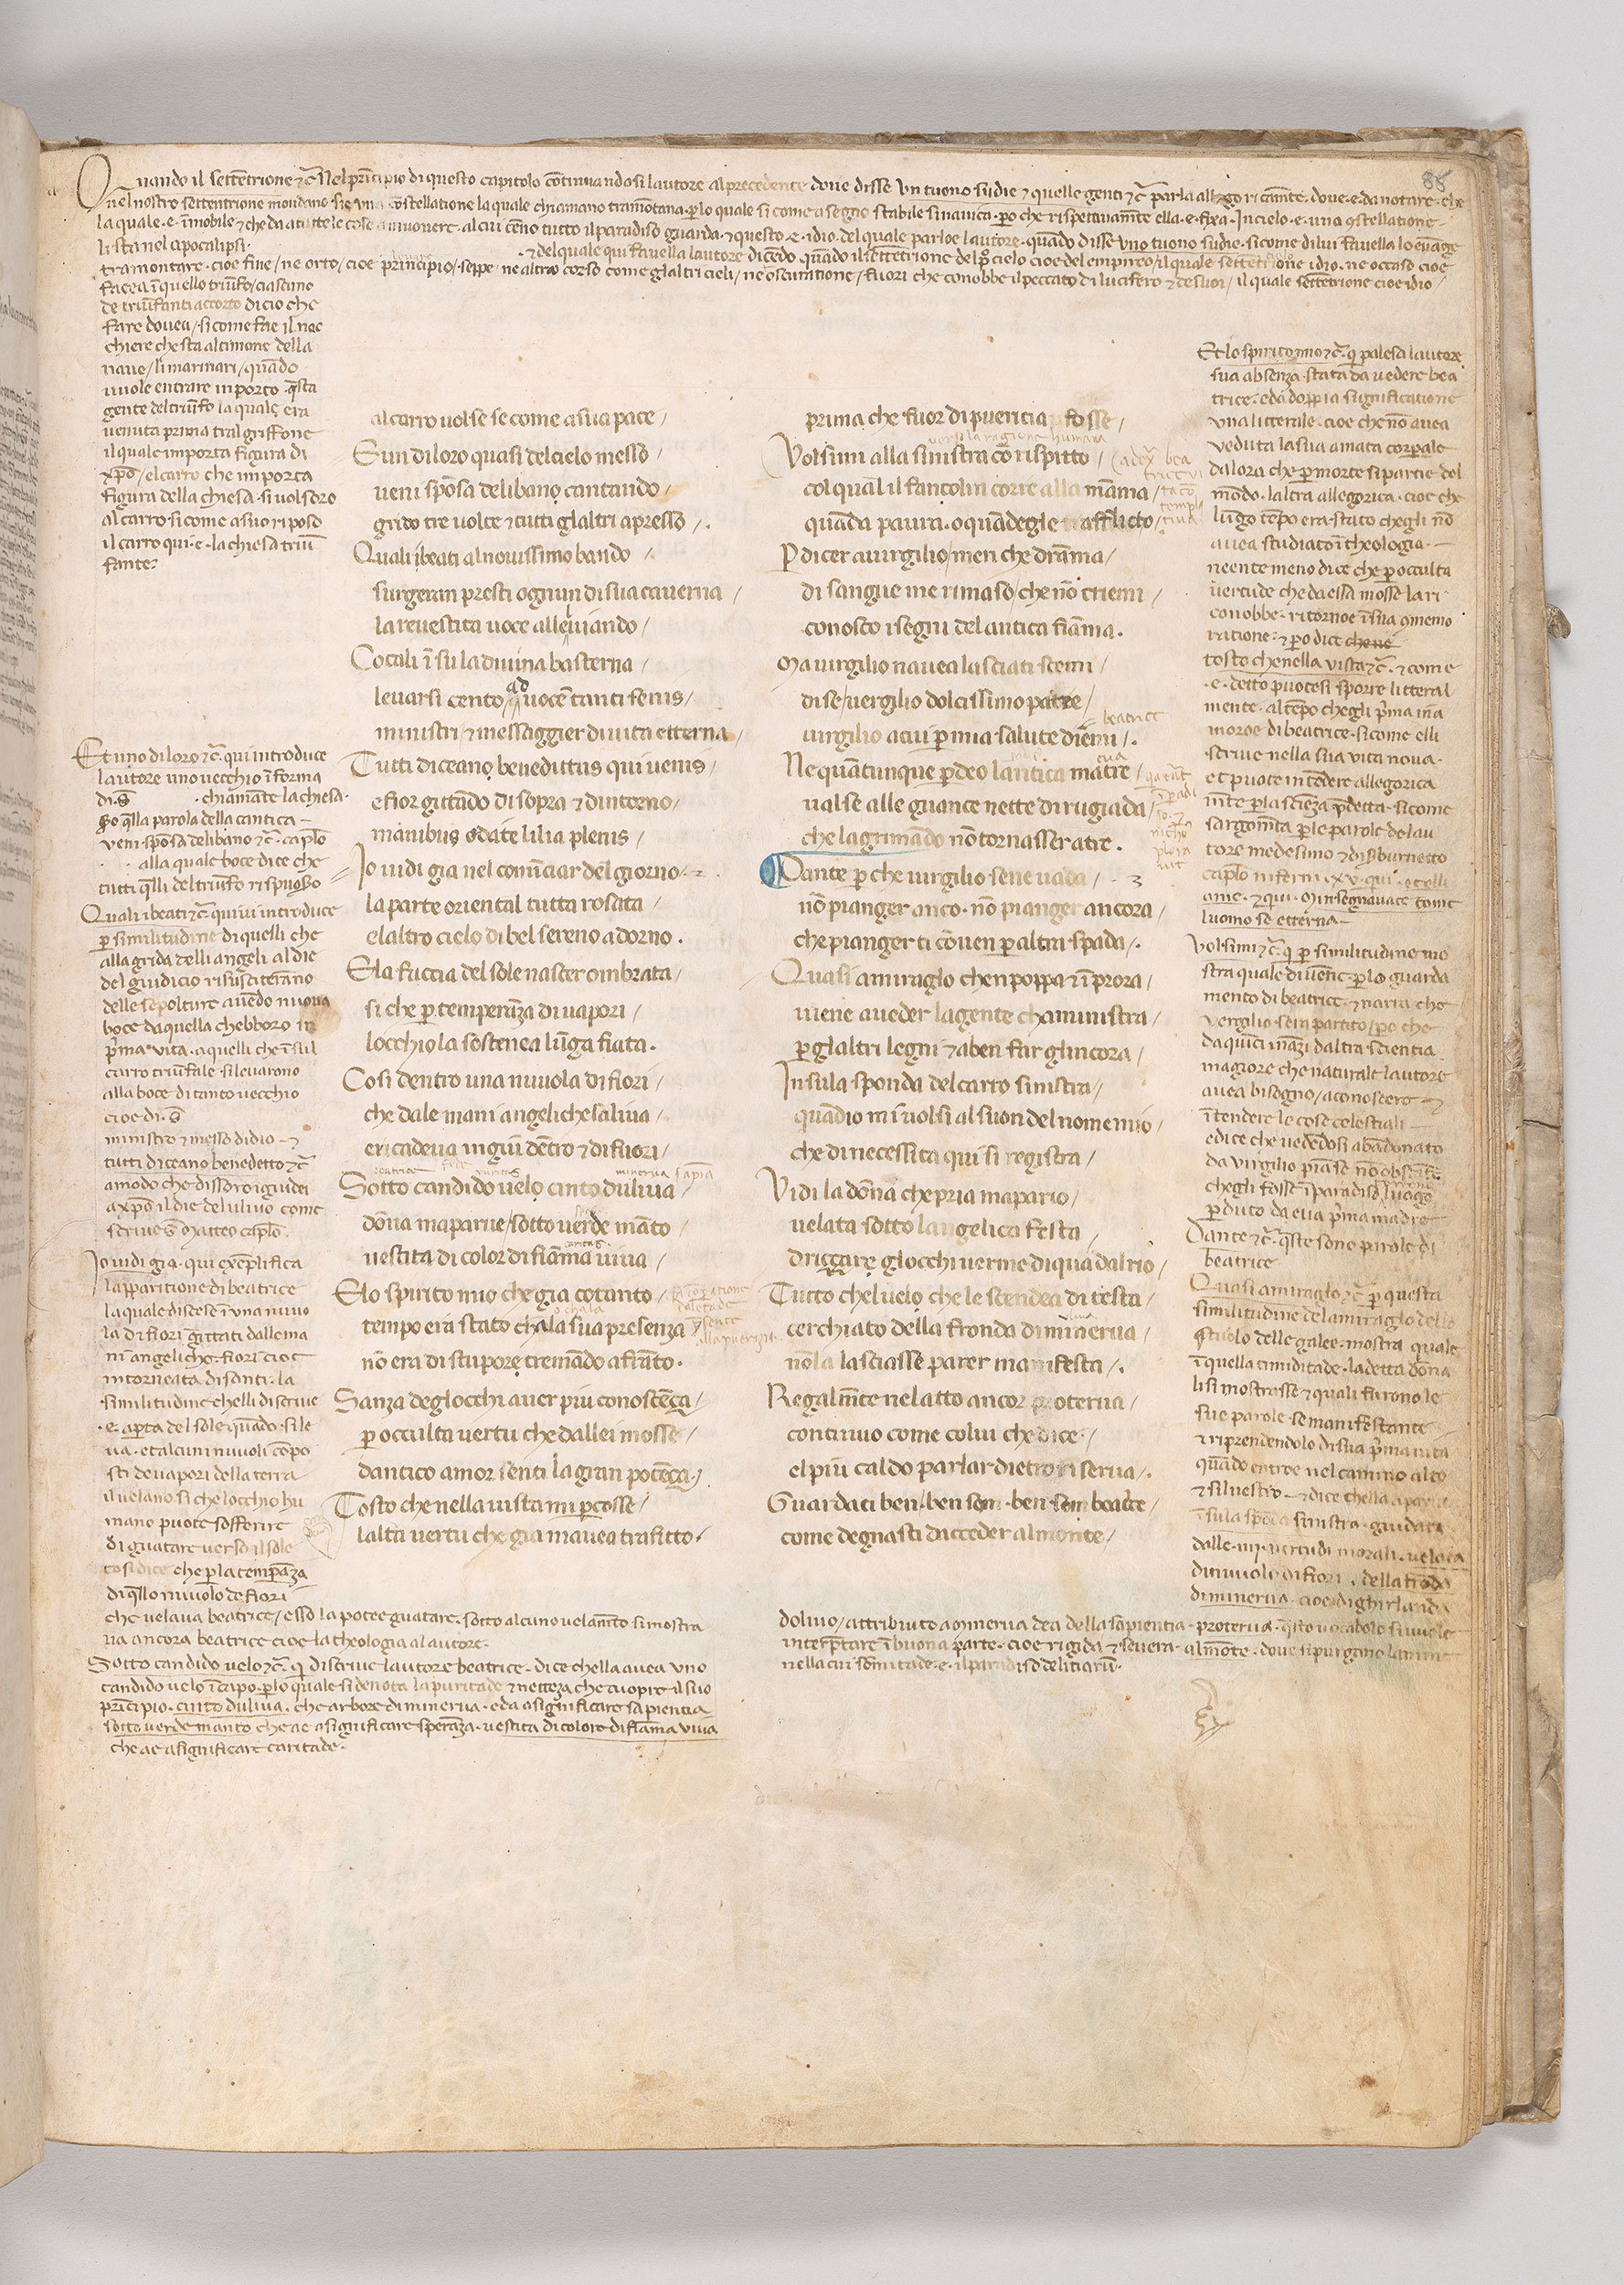 88
Quando il settentrione ⁊c̄ Nel principio di questo capitolo continuandosi lautore al precedente doue disse Vn tuono sudie ⁊ quelle genti ⁊c̄ parla allegoricam̄te. doue.e.da notare.che
nel nostro settentrione mondano si e una constellatione la quale chiamano tramōtana.per lo quale si come a segno stabile si nauica.pero che rispettiuam̄te ella.e.fixa.In cielo.e.una ꝯstellatione
la quale.e.īmobile ⁊ che da a tutte le cose a muouere.al cui cēno tutto il paradiso guarda.⁊ questo.e.idio.del quale parloe lautore.quādo disse vno tuono sudie.si come di lui fauella lo euāge
lista nel apocalipsi.
⁊ del quale qui fauella lautore dicēdo quādo il settētrione del pº cielo cioe del empireo/il quale settētrione idio.ne occaso cioe
tramontare.cioe fine/ne orto/cioe principio/seppe ne altro corso come glaltri cieli/ne oscuratione/fuori che conobbe il peccato di lucifero ⁊ de suoi/il quale settētrione cioe idio
facea ī quello triūfo/ciascuno
de triūfanti accorto di cio che
fare douea/si come fae il noc
chiere che sta al timone della
naue/li marinari/quādo
uuole entrare in porto.q̄sta
gente del triūfo la quale era
uenuta prima tral griffone
il quale importa figura di
xp̄o/el carro che importa
figura della chiesa.si uolsero
al carro si come a suo riposo
il carro qui.e.la chiesa triū
fante:
Et uno di loro ⁊c̄.qui introduce
lautore uno uecchio ī forma
di.S̄ .chiamāte la chiesa.
so q̄lla parola della cantica
veni spōsa de libano ⁊c̄.cap̄lo
alla quale boce dice che
tutti q̄lli del triūfo rispuoso
Quali i beati ⁊c̄ quiui introduce
per similitudine di quelli che
alla grida delli angeli al die
del giudicio risusciterāno
delle sepolture auēdo nuoua
boce da quella chebboro in
p̄ma vita.a quelli che ī sul
carro triūfale.si leuarono
alla boce di tanto uecchio
cioe di.S̄
ministro ⁊ messo didio
tutti diceano benedetto ⁊c̄
a modo che dissero i giudei
a xp̄o il die de luliuo come
scriue S̄ Matteo cap̄lo.
Io uidi gia.qui exēplifica
lapparitione di beatrice
la quale discese ī una nuuo
la di fiori gittati dalle ma
ni angeliche.fiori cioe
intorneata di santi.la
similitudine chelli discriue
.e.aperta del sole quādo.si le
ua.et alcuni nuuoli cōpo
sti de uapori della terra
il uelano si che locchio hu
mano puote sofferire
di guatare uerso il sole
cosi dice che per la temperāza
di q̄llo nuuolo de fiori
che uelaua beatrice/esso la potee guatare.sotto alcuno uelam̄to si mostra
ua ancora beatrice cioe la theologia al autore.
Sotto candido uelo ⁊c̄.q̄ discriue lautore beatrice.dice chella auea uno
candido uelo ī capo.per lo quale si denota la puritade ⁊ netteza che cuopre il suo
prīcipio.cinto duliua.che arbore di minerua.e da a significare sapientia
sotto uerde manto che ae a significare sperāza.uestita di colore di fiama uiua
che ae a significare caritade.
al carro uolse se come a sua pace/
E un di loro quasi del cielo messo/
ueni spōsa de libano cantando/
grido tre uolte ⁊ tutti glaltri apresso/.
Quali i beati al nouissimo bando/
surgeran presti ognun di sua cauerna/
la reuestita uoce alleuiando/
Cotali ī su la diuina basterna/
leuarsi cento ad uocē tanti senis/
ministri ⁊ messaggier di uita etterna/
Tutti diceano benedictus qui uenis/
e fior gittādo di sopra ⁊ dintorno/
manibus o date lilia plenis/
Io uidi gia nel comīciar del giorno
la parte oriental tutta rosata/
e laltro cielo di bel sereno adorno.
E la faccia del sole nascer ombrata/
si che per temperāza di uapori/
locchio la sostenea lūga fiata.
Cosi dentro una nuuola di fiori/
che dale mani angeliche saliua/
e ricadeua in giu dētro ⁊ di fuori/
beatrice
minerua sapiā
Sotto candido uelo cinto duliua/
dōna maparue/sotto uerde māto/
uestita di color di fiāma uiua/
E lo spirito mio che gia cotanto/
tempo era stato cha la sua presenza
nō era di stupore tremādo afrāto.
Sanza degliocchi auer piu conoscēça/
per occulta uertu che da llei mosse/
dantico amor senti la gran potēça.
Tosto che nella uista mi percosse/
lalta uertu che gia mauea trafitto/
prima che fuor di pueritia fosse/
uerso la ragione humana
Volsimi alla sinistra cō rispitto/
col qual il fantolin corre alla māma/
quāda paura.o quādegle afflicto/
Per dicer a uirgilio/men che drāma/
di sangue me rimaso/che nō triemi/
conosco i segni del antica fiāma.
Ma uirgilio nauea lasciati scemi/
di se/uergilio dolcissimo patre/
beatrice
uirgilio a cui per mia salute diēmi/.
Ne quātunque perdeo lantica matre/
ualse alle guance nette di rugiada/
che lagrimādo nō tornasser atre.
Dante per che uirgilio sene uada/
nō pianger anco.nō pianger ancora/
che pianger ti cōuen per altra spada/.
Quasi amiraglo chen poppa ⁊ ī prora/
uiene a ueder la gente chaministra/
per glaltri legni ⁊ a ben far glincora/
In su la sponda del carro sinistra/
quādio mi uolsi al suon del nome mio/
che di necessita qui si registra/
Vidi la dōna che pria mapario/
uelata sotto langelica festa/
driççare gliocchi uer me di qua dal rio/
Tutto chel uelo che le scendea di testa/
cerchiato della fronda di minerua/
nō la lasciasse parer manifesta/.
Regalm̄te nel atto ancor proterua/
continuo come colui che dice/
el piu caldo parlar dietro riserua/.
Guardaci ben/ben son.ben son beatrice/
come degnasti daccceder al monte/
Et lo spirito mio ⁊c̄.q̄ palesa lautore
sua absenza.stata da uedere bea
trice.e da doppia significatione
una litterale.cioe che nō auea
ueduta la sua amata corporale
da lora che per morte si partie del
mōdo.laltra allegorica.cioe che
lūgo tēpo era stato chegli nō
auea studiato ī theologia.
neente meno dice che per occulta
uertude che da essa mosse la ri
conobbe.ritornoe ī sua ꝯmemo
ratione:⁊ pero dice
tosto che nella uista ⁊c̄.⁊ come
.e.detto puotesi sporre litteral
mente.al tēpo chegli p̄ma īna
moroe di beatrice.si come elli
scriue nella sua uita noua.
et puote intēdere allegorica
m̄te per la sciēza p̄detta.si come
sargomēta per le parole de lau
tore medesimo ⁊ di s̄ burnetto
cap̄lo inferni.xv.qui.
ame.⁊ qui.Minsegnauate come
luomo se etterna
Volsimi ⁊c̄.q̄ per similitudine mo
stra quale diuēne per lo guarda
mento di beatrice.⁊ narra che
uergilio sem partito/pero che
da quīci ināzi daltra scientia
magiore che naturale lautore
auea bisogno/a conoscere
ītendere le cose celestiali
e dice che uedēdosi abādonato
da uirgilio piāse
chegli fosse ī paradiso luogo
perduto da eua p̄ma madre
Dante ⁊c̄.q̄ste sono parole di
beatrice
Quasi amiraglo ⁊c̄ per questa
similitudine de lamiraglo dello
stuolo delle galee.mostra quale
ī quella timiditade.la detta dōna
li si mostrasse ⁊ quali furono le
sue parole.se manifestante
⁊ riprendendolo di sua p̄ma uita
quādo entroe nel camino alto
⁊ siluestro.⁊ dice chella
ī su la spōda sinistra.guidata
dalle.iiij.uertudi morali.uelata
di nuuole di fiori.della frōda
di minerua.cioe di ghirlanda
doliuo/attribuito a Minerua dea della sapientia.proterua.q̄sto uocabolo si uuole
interp̄tare ī buona parte.cioe rigida ⁊ seuera.al mōte.doue si purgano
nella cui sōmitade.e.il paradiso delitiarū.